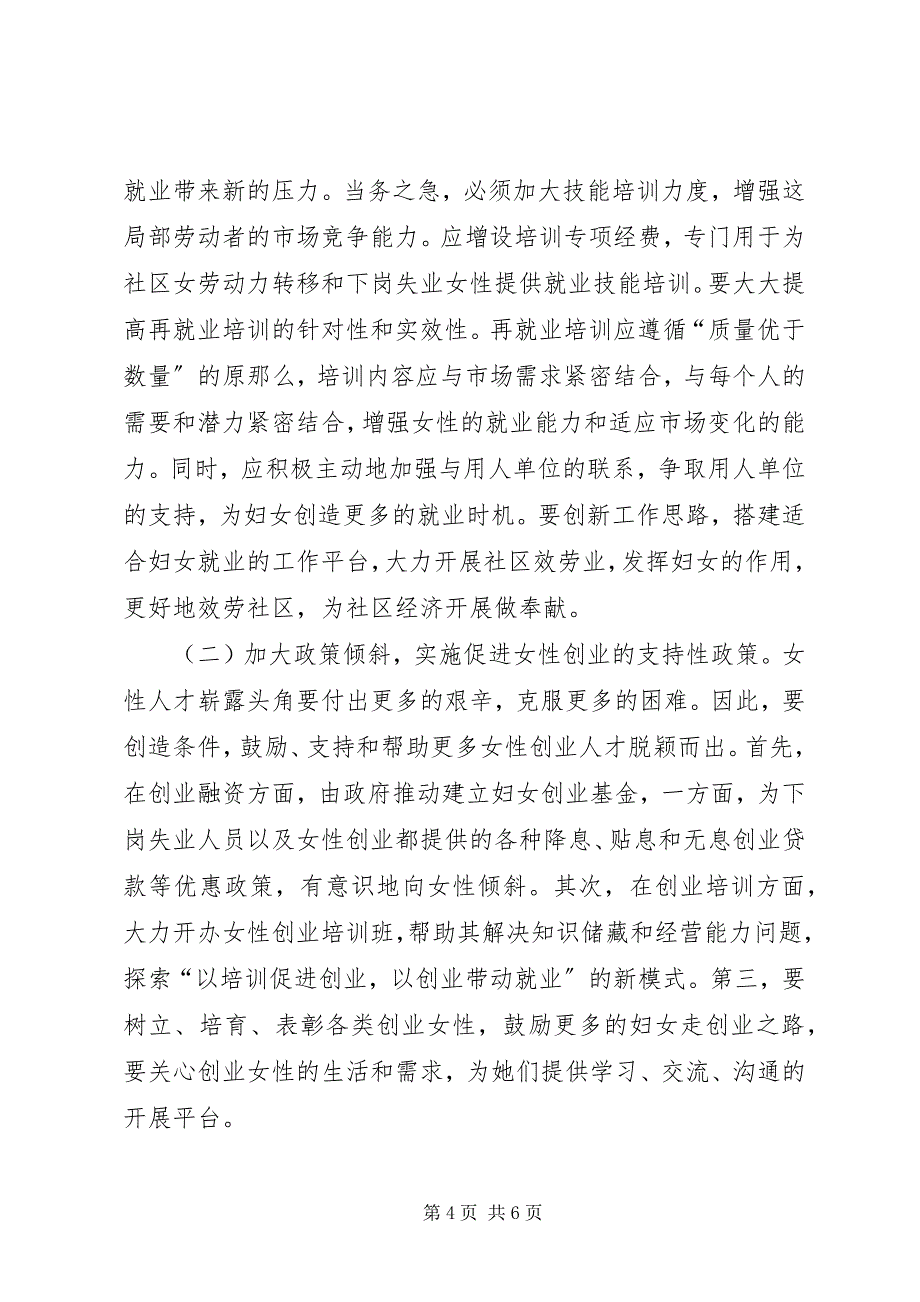 就业带来新的压力。当务之急，必须加大技能培训力度，增强这
局部劳动者的市场竞争能力。应增设培训专项经费，专门用于为
社区女劳动力转移和下岗失业女性提供就业技能培训。要大大提
高再就业培训的针对性和实效性。再就业培训应遵循“质量优于
数量〞的原那么，培训内容应与市场需求紧密结合，与每个人的
需要和潜力紧密结合，增强女性的就业能力和适应市场变化的能
力。同时，应积极主动地加强与用人单位的联系，争取用人单位
的支持，为妇女创造更多的就业时机。要创新工作思路，搭建适
合妇女就业的工作平台，大力开展社区效劳业，发挥妇女的作用，
更好地效劳社区，为社区经济开展做奉献。
（二）加大政策倾斜，实施促进女性创业的支持性政策。女
性人才崭露头角要付出更多的艰辛，克服更多的困难。因此，要
创造条件，鼓励、支持和帮助更多女性创业人才脱颖而出。首先，
在创业融资方面，由政府推动建立妇女创业基金，一方面，为下
岗失业人员以及女性创业都提供的各种降息、贴息和无息创业贷
款等优惠政策，有意识地向女性倾斜。其次，在创业培训方面，
大力开办女性创业培训班，帮助其解决知识储藏和经营能力问题，
探索“以培训促进创业，以创业带动就业〞的新模式。第三，要
树立、培育、表彰各类创业女性，鼓励更多的妇女走创业之路，
要关心创业女性的生活和需求，为她们提供学习、交流、沟通的
开展平台。
第 4 页 共 6 页